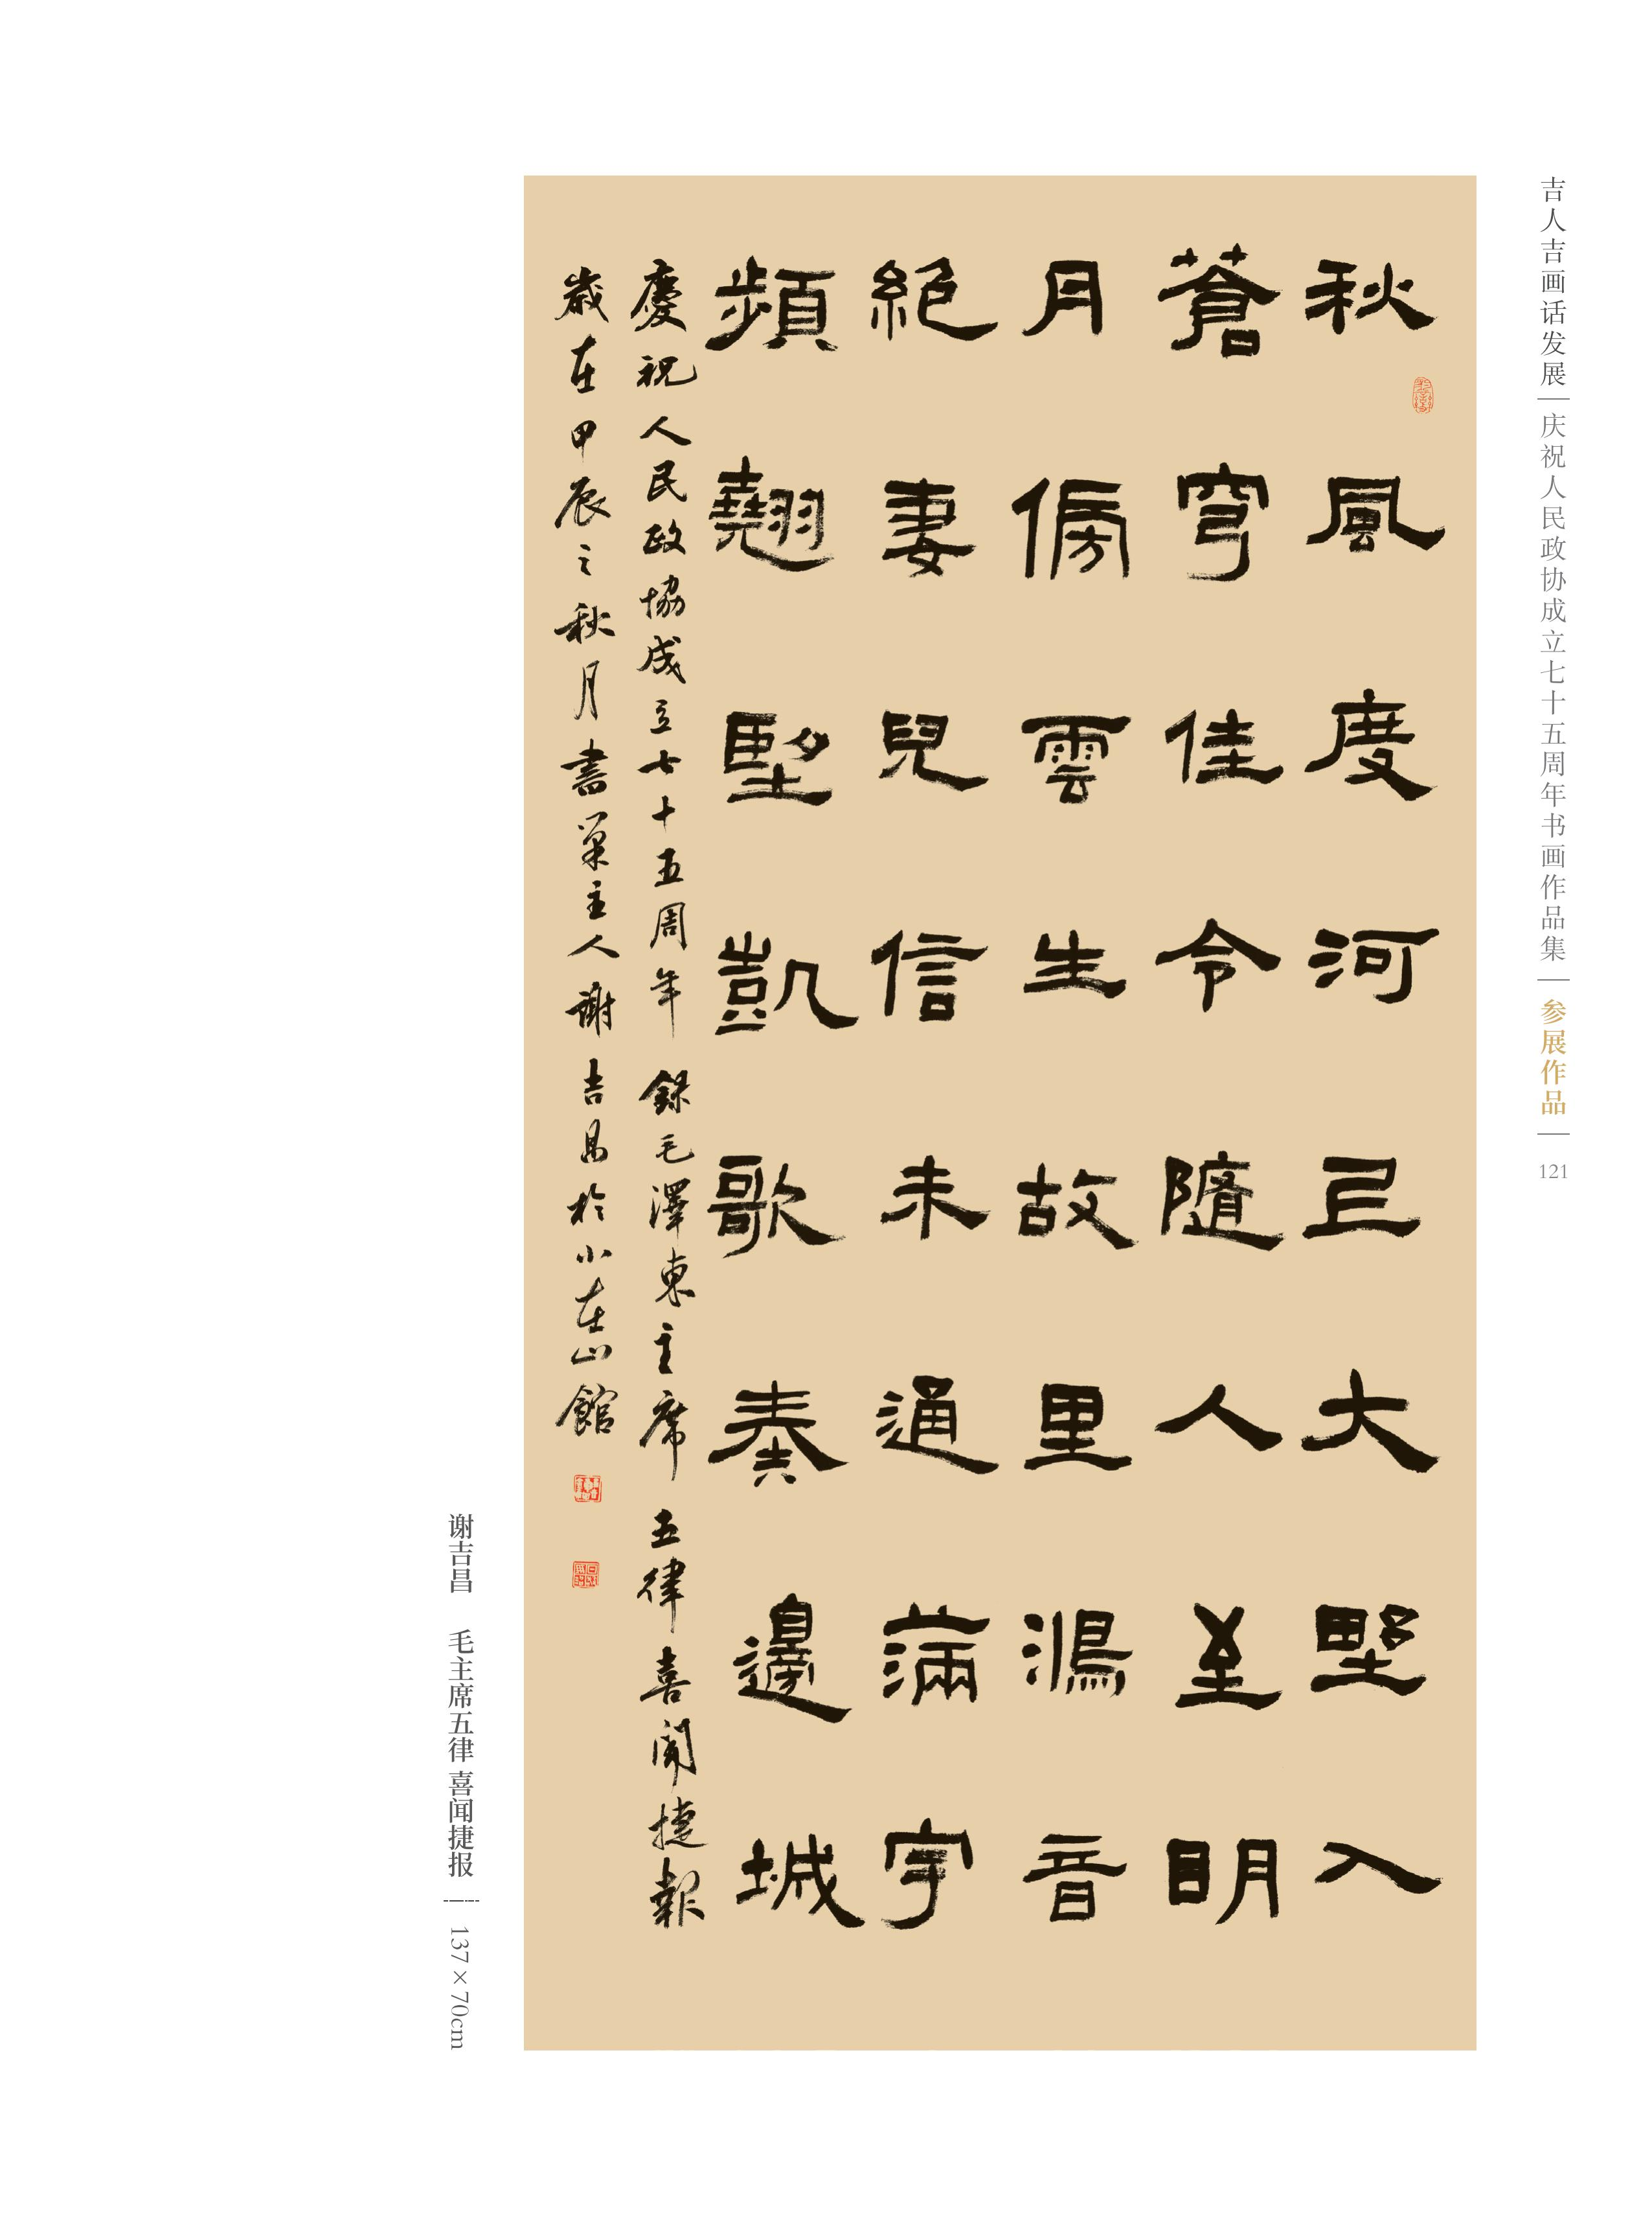 吉人吉画话发展 庆祝人民政协成立七十五周年书画作品集 参展作品 121
秋風度河已大野入
蒼穹佳令隨人至明
月傍雲生故里鴻音
絕妻兒信未通滿宇
頻翹望凱歌奏邊城
慶祝人民政協成立七十五周年 錄毛澤東主席五律喜聞捷報
歲在甲辰之秋月書巢主人謝吉昌於小在山館
谢吉昌 毛主席五律 喜闻捷报 137×70cm